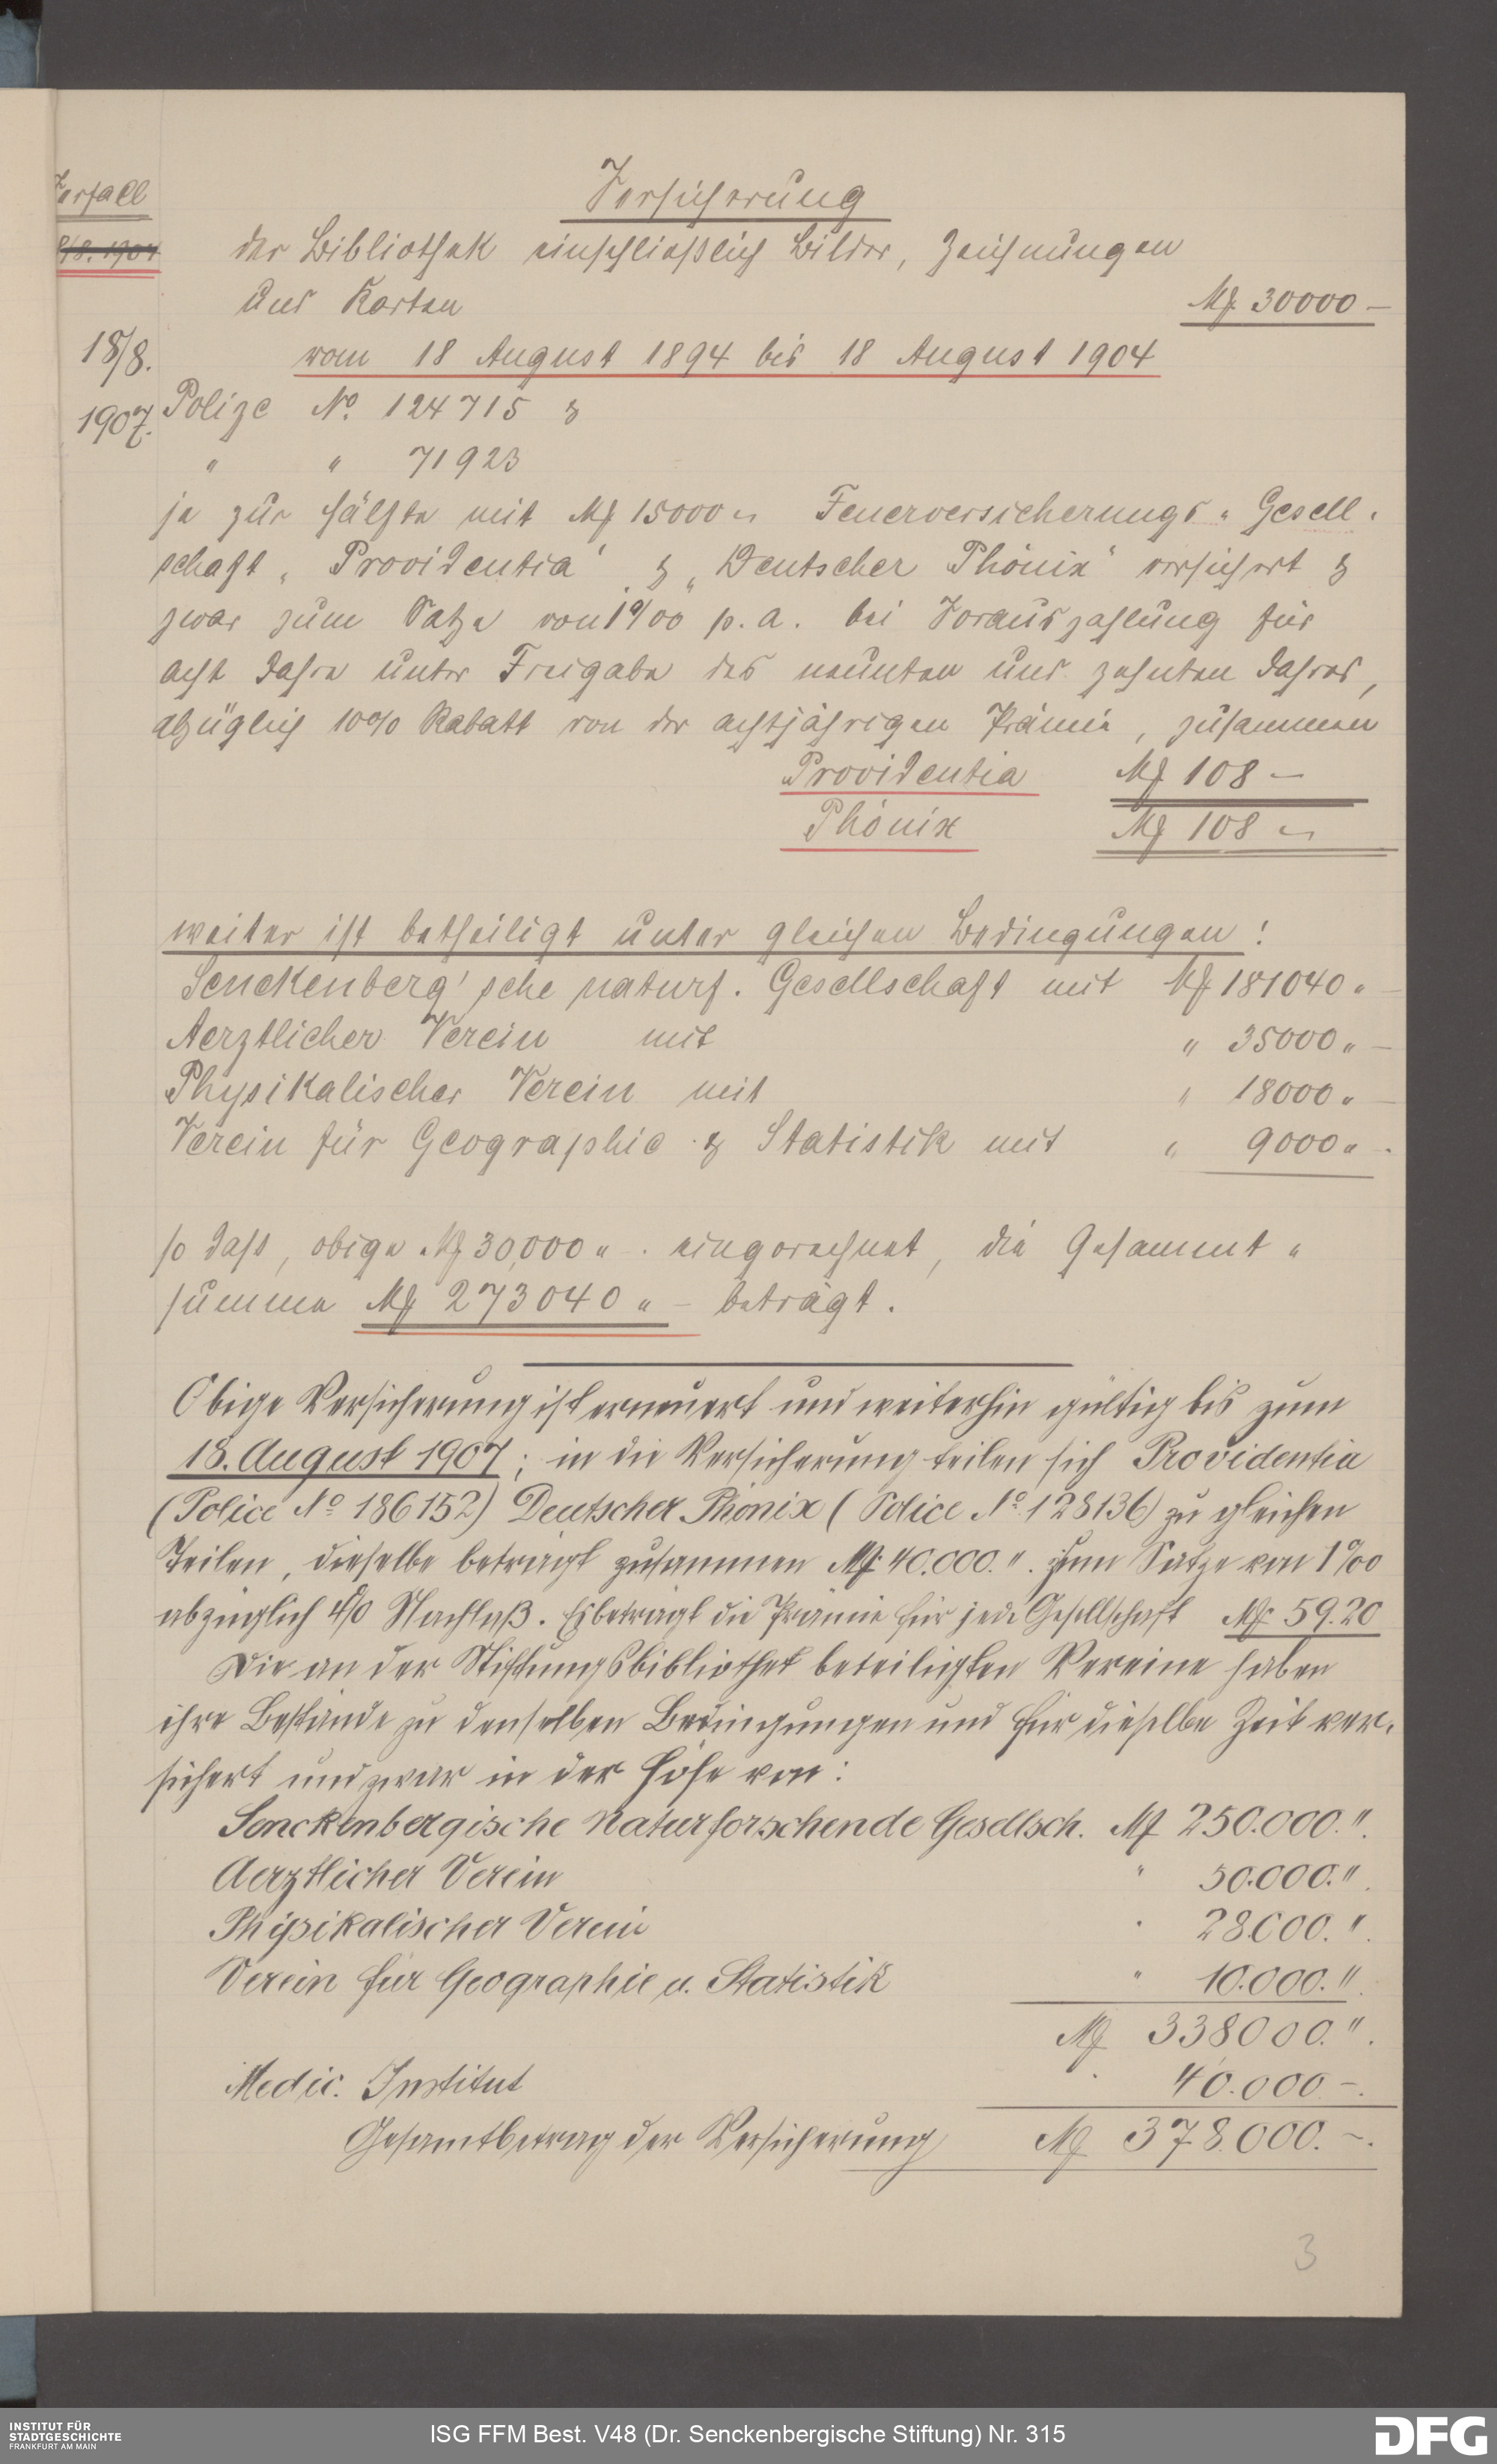 Verfall
18/8. 1904
18/8.
1907.
Versicherung
der Bibliothek einschließlich Bilder, Zeichnungen
und Karten Mk 30000 –
vom 18 August 1894 bis 18 August 1904
Polize No. 124715 &
" " 71923
je zur Hälfte mit Mk 15000 „ Feuerversicherungs- Gesell-
schaft „Providentia“ & „Deutscher Phönix“ versichert &
zwar zum Satze von 1‰ p. a. bei Vorauszahlung für
acht Jahre unter Freigabe des neunten und zehnten Jahres,
abzüglich 10% Rabatt von der achtjährigen Prämie, zusammen
Providentia Mk 108 –
Phönix Mk 108 „
weiter ist betheiligt unter gleichen Bedingungen:
Senckenberg'sche naturf. Gesellschaft mit Mk 181040 „ –
Aerztlicher Verein mit " 35000 „ –
Physikalischer Verein mit " 18000 „ –
Verein für Geographie & Statistik mit " 9000 „ –
so daß, obige Mk 30,000 „ – eingerechnet, die Gesammt-
summe Mk 273040 „ – beträgt.
Obige Versicherung ist erneuert und weiterhin gültig bis zum
18. August 1907; in die Versicherung teilen sich Providentia
(Police No 186152) Deutscher Phönix (Police No 128136) zu gleichen
Teilen, dieselbe beträgt zusammen Mk 40.000.". zum Satze von 1‰
abzüglich 4% Nachlaß. Es beträgt die Prämie für jede Gesellschaft Mk 59.20
Die an der Stiftungsbibliothek beteiligten Vereine haben
ihre Bestände zu denselben Bedingungen und für dieselbe Zeit ver-
sichert und zwar in der Höhe von:
Senckenbergische Naturforschende Gesellsch. Mk 250.000.".
Aerztlicher Verein " 50.000.".
Physikalischer Verein " 28.000.".
Verein für Geographie u. Statistik " 10.000.".
Mk 338000.".
Medic. Institut " 40.000 –.
Gesamtbetrag der Versicherung Mk 378.000. –.
3
INSTITUT FÜR
STADTGESCHICHTE
FRANKFURT AM MAIN
ISG FFM Best. V48 (Dr. Senckenbergische Stiftung) Nr. 315
DFG